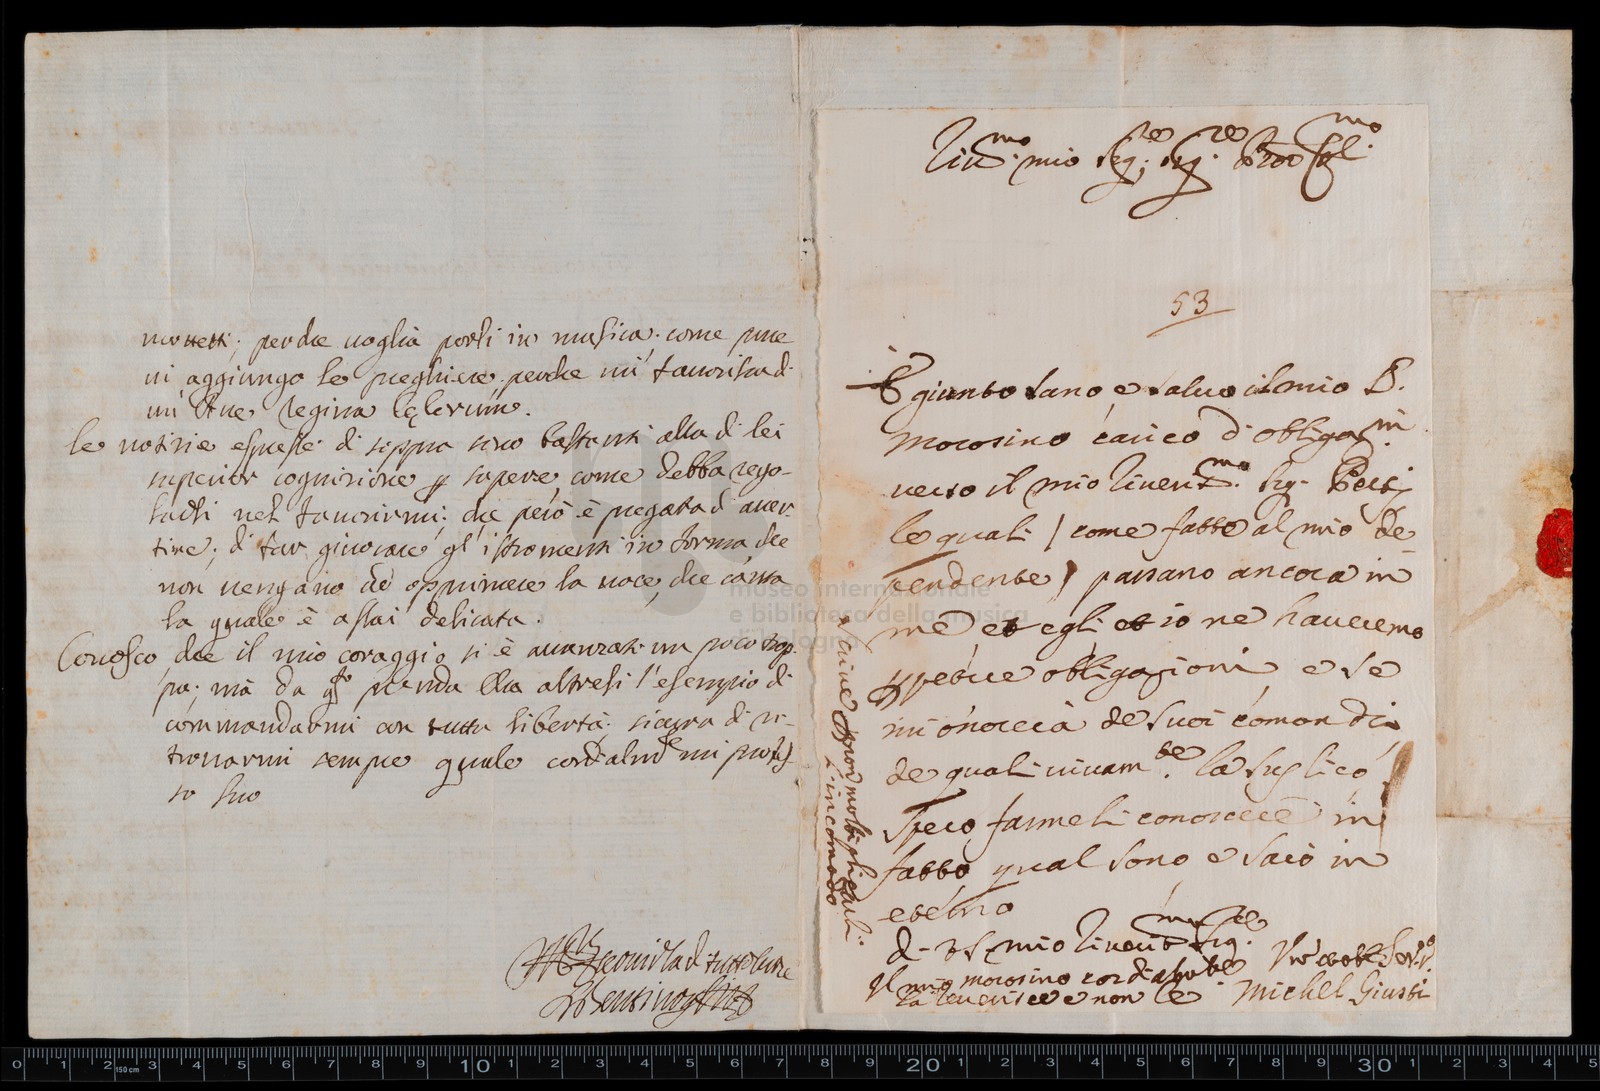 mottetti; perche voglia porli in musica. come pure
vi aggiungo le preghiere, perche mi favorisca di
un' Ave Regina Celorum.
le notizie espresse di soppra sono bastanti alla di lei
superior cognizione per sapere come debba rego-
larsi nel favorirmi; che però è pregata di aver-
tire, di far giuocare gl' istromenti in forma che
non vengano ad opprimere la voce, che canta
la quale è assai delicata.
Conosco che il mio coraggio si è avanzato un poco trop-
po; mà da q.sto prenda Ella altresi l'esempio di
commandarmi con tutta libertà; sicura di ri-
trovarmi sempre quale cordialm.te mi protes-
to suo
di tutto cuore
Bentivoglio
mio Sig.re Sig.re Pron Col.mo
53
È giunto sano e salvo il mio S.
Morosino carico d'obligaz.ni
verso il mio River.mo Sig. Perti
le quali / come fatto al mio de-
pendente / passano ancora in
me et egli et io ne haveremo
perpetue obligazioni e se
mi onorerà de suoi comandi
de quali vivam.te la suplico
spero farmeli conoscere in
fatto qual sono e sarò in
eterno
di V.S. mio River.mo Sig.re
Il mio Morosino cordialm.te
la riverisce e non le
Vro Serv.re
Michel Giusti
scrive per non moltiplicarli
l'incomodo
museo internazionale
e biblioteca della musica
di bologna